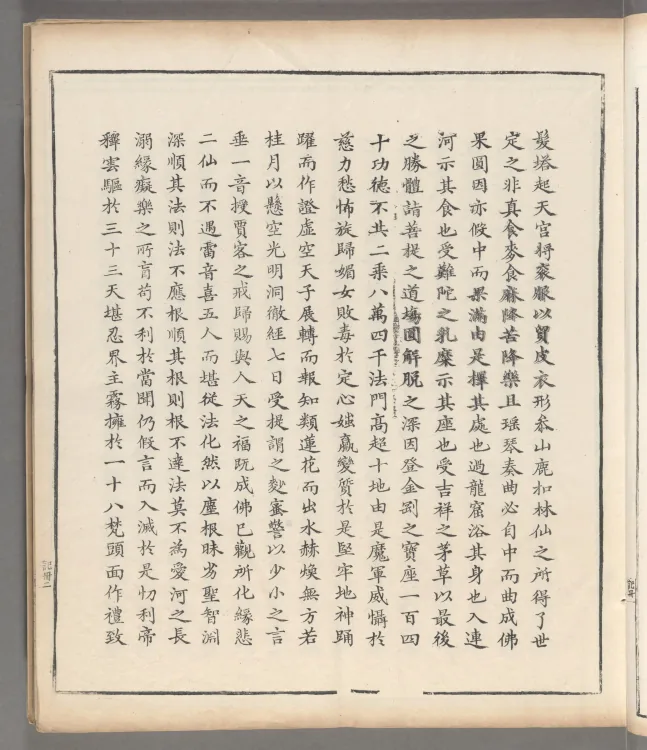 髮塔起天宮將袞服以貿皮衣形叅山鹿扣林仙之所得了世
定之非真食麥食麻降苦降樂且瑤琴奏曲必自中而曲成佛
果圓因亦假中而果滿由是擇其處也過龍窟浴其身也入連
河示其食也受難陀之乳糜示其座也受吉祥之茅草以最後
之勝體詣菩提之道場圓解脫之深因登金剛之寶座一百四
十功德不共二乘八萬四千法門高超十地由是魔軍威懾於
慈力愁怖旋歸媚女敗毒於定心媸羸變質於是堅牢地神踊
躍而作證虛空天子展轉而報知類蓮花而出水赫煥無方若
桂月以懸空光明洞徹經七日受提謂之麨蜜警以少小之言
垂一音授賈客之戒歸賜與人天之福既成佛已觀所化緣悲
二仙而不遇雷音喜五人而堪從法化然以塵根昧劣聖智淵
深順其法則法不應根順其根則根不達法莫不為愛河之長
溺緣癡樂之所盲苟不利於當聞仍假言而入滅於是忉利帝
釋雲驅於三十三天堪忍界主霧擁於一十八梵頭面作禮致
記冊二